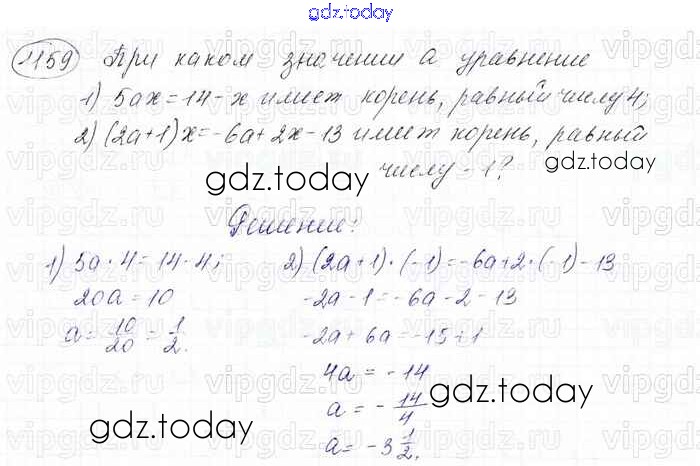 gdz.today
1159 При каком значении а уравнение
1) 5ах=14-х имеет корень, равный числу 4;
2) (2а+1)х=-6а+2х-13 имеет корень, равный
числу -1?
gdz.today
gdz.today
Решение:
1) 5а·4=14-4;
20а=10
а=10/20=1/2.
2) (2а+1)·(-1)=-6а+2·(-1)-13
-2а-1=-6а-2-13
-2а+6а=-15+1
4а=-14
а=-14/4
а=-3 1/2.
gdz.today
gdz.today